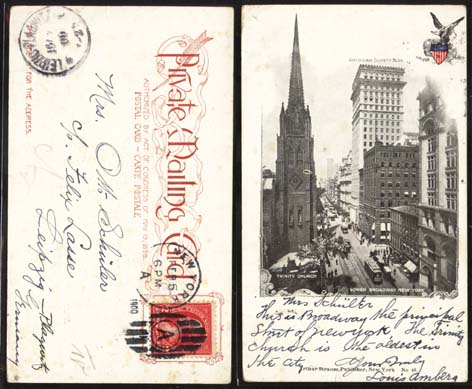 Private Mailing Card
AUTHORIZED BY ACT OF CONGRESS OF MAY 19, 1898.
POSTAL CARD – CARTE POSTALE
FOR THE ADDRESS.
Mrs. Ott Schüler
Felix Lasse
Leipzig–Plagwitz
Germany
NEW YORK
SEP 5
6 PM
1900
A
AMERICAN SURETY BLDG.
TRINITY CHURCH
LOWER BROADWAY NEW YORK
Mrs Schüler
This is Broadway the principal
Street of New York The Trinity
Church is the oldest in
the City
Yours truly
Louis Ambers
Arthur Strauss, Publisher, New York.